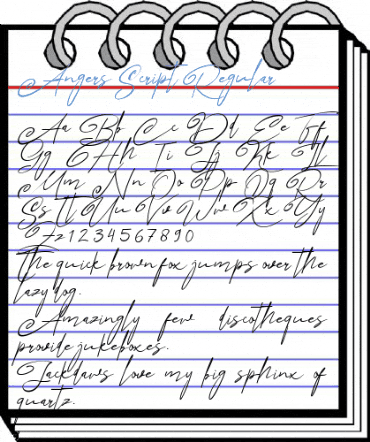 Angers Script Regular
Aa Bb Cc Dd Ee Ff
Gg Hh Ii Jj Kk Ll
Mm Nn Oo Pp Qq Rr
Ss Tt Uu Vv Ww Xx Yy
Zz 1 2 3 4 5 6 7 8 9 0
The quick brown fox jumps over the
lazy dog.
Amazingly few discotheques
provide jukeboxes.
Jackdaws love my big sphinx of
quartz.